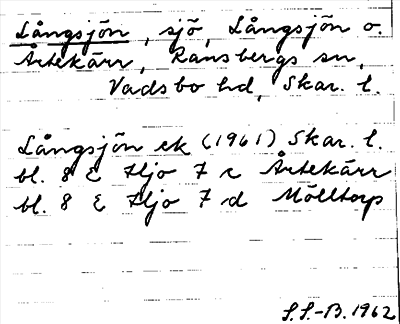 Långsjön, sjö, Långsjön o.
Årtekärr, Ransbergs sn,
Vadsbo hd, Skar. l.
Långsjön ek (1961) Skar. l.
bl. 8 E Hjo 7 c Årtekärr
bl. 8 E Hjo 7 d Mölltorp
S.S.-B. 1962